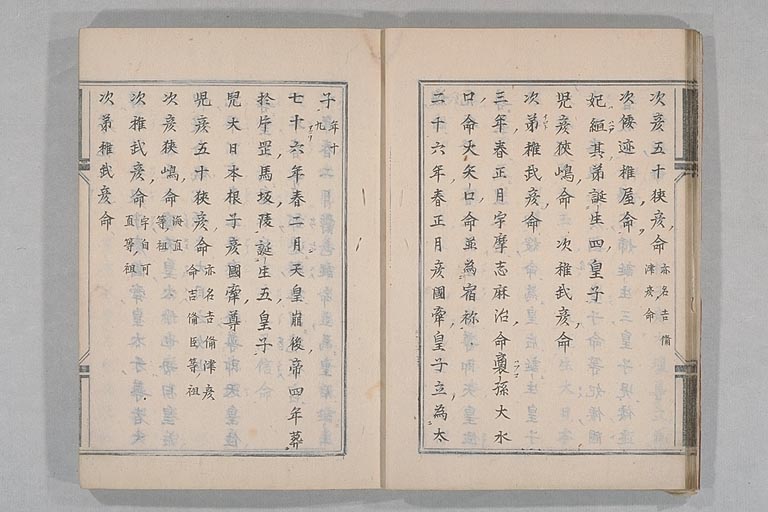 次彦五十狭彦命亦名吉備津彦命
次倭迹稚屋命
妃絙其弟誕生四皇子
児彦狭嶋命 次稚武彦命
次弟稚武彦命
三年春正月宇摩志麻治命裔孫大水
口命大矢口命並為宿祢
二十六年春正月彦國牽皇子立為太
子年十九
七十六年春二月天皇崩後帝四年葬
於片罡馬坂陵誕生五皇子
児大日本根子彦國牽尊
児彦五十狭彦命亦名吉備津彦命吉備臣等祖
次彦狭嶋命海直等祖
次稚武彦命宇自可直等祖
次弟稚武彦命